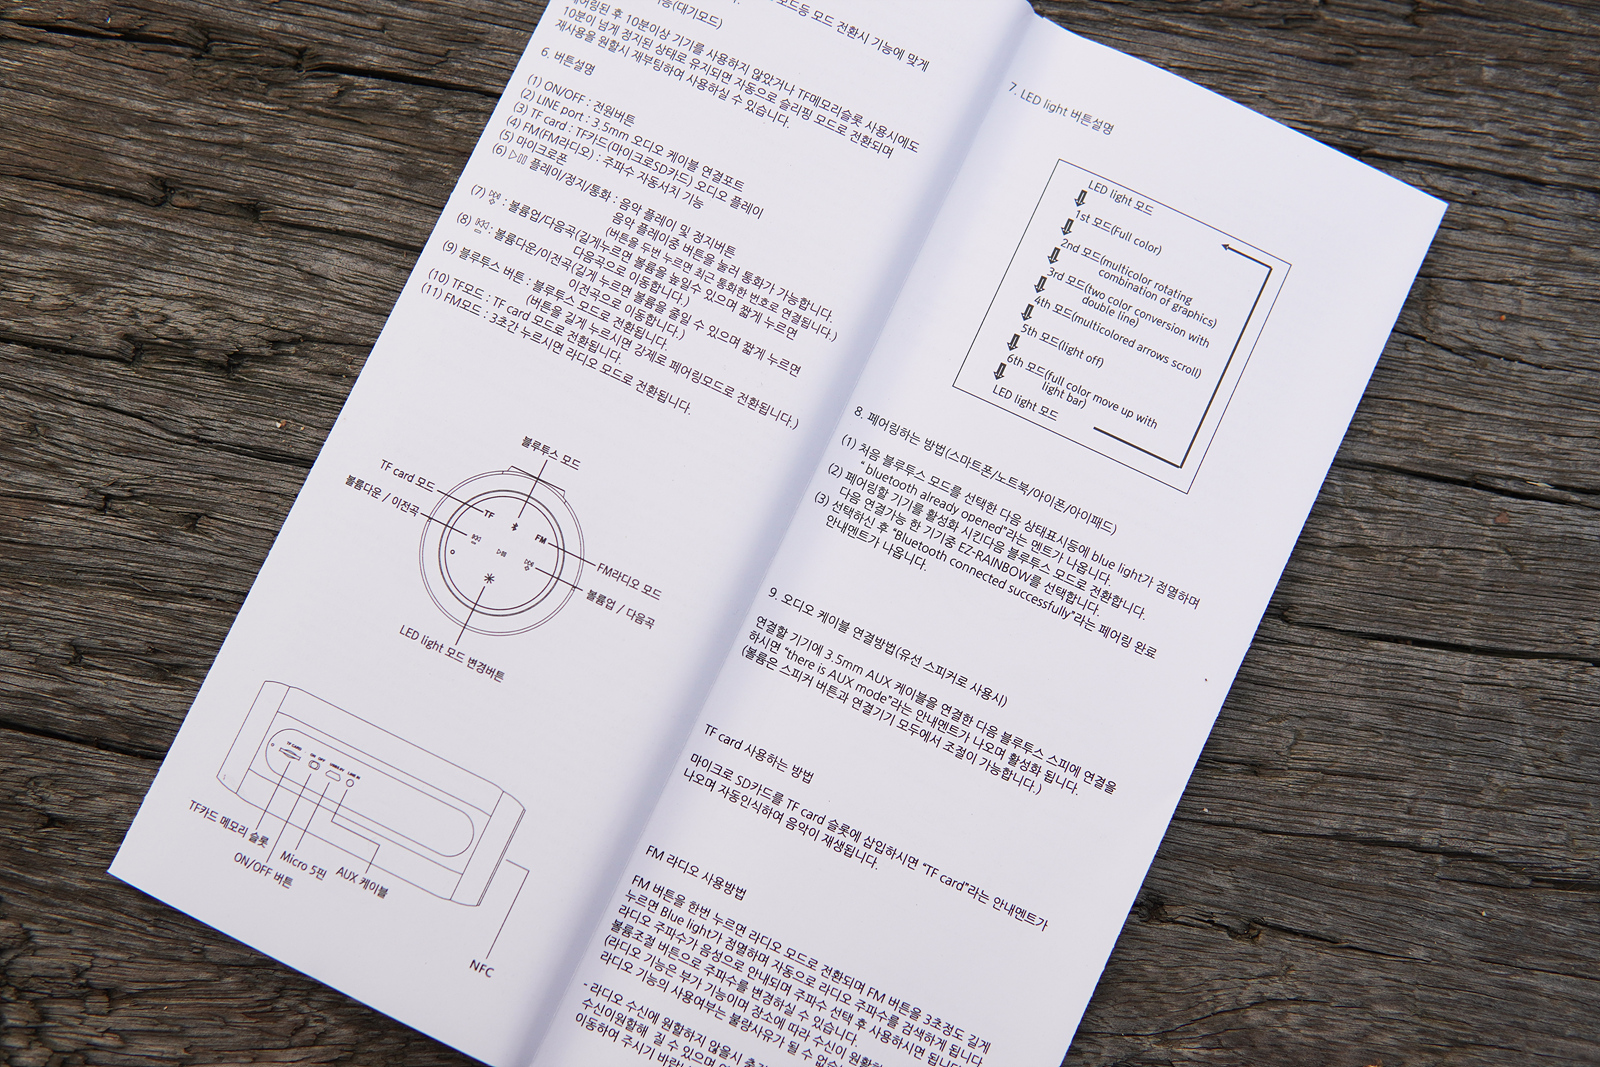 모드등 모드 전환시 기능에 맞게
능(대기모드)
페어링된 후 10분이상 기기를 사용하지 않았거나 TF메모리슬롯 사용시에도
10분이 넘게 정지된 상태로 유지되면 자동으로 슬리핑 모드로 전환되며
재사용을 원할시 재부팅하여 사용하실 수 있습니다.
6. 버튼설명
(1) ON/OFF : 전원버튼
(2) LINE port : 3.5mm 오디오 케이블 연결포트
(3) TF card : TF카드(마이크로SD카드) 오디오 플레이
(4) FM(FM라디오) : 주파수 자동서치 기능
(5) 마이크로폰
(6) ▷▯▯ 플레이/정지/통화 : 음악 플레이 및 정지버튼
음악 플레이중 버튼을 눌러 통화가 가능합니다.
(버튼을 두번 누르면 최근 통화한 번호로 연결됩니다.)
(7) : 볼륨업/다음곡(길게누르면 볼륨을 높일수 있으며 짧게 누르면
다음곡으로 이동합니다.)
(8) : 볼륨다운/이전곡(길게 누르면 볼륨을 줄일 수 있으며 짧게 누르면
이전곡으로 이동합니다.)
(9) 블루투스 버튼 : 블루투스 모드로 전환됩니다.
(버튼을 길게 누르시면 강제로 페어링모드로 전환됩니다.)
(10) TF모드 : TF card 모드로 전환됩니다.
(11) FM모드 : 3초간 누르시면 라디오 모드로 전환됩니다.
블루투스 모드
TF card 모드
볼륨다운 / 이전곡
TF
FM
FM라디오 모드
볼륨업 / 다음곡
LED light 모드 변경버튼
TF CARD
ON OFF
LINE IN
TF카드 메모리 슬롯
ON/OFF 버튼
Micro 5핀
AUX 케이블
NFC
7. LED light 버튼설명
LED light 모드
1st 모드(Full color)
2nd 모드(multicolor rotating
combination of graphics)
3rd 모드(two color conversion with
double line)
4th 모드(multicolored arrows scroll)
5th 모드(light off)
6th 모드(full color move up with
light bar)
LED light 모드
8. 페어링하는 방법(스마트폰/노트북/아이폰/아이패드)
(1) 처음 블루투스 모드를 선택한 다음 상태표시등에 blue light가 점멸하며
“bluetooth already opened”라는 멘트가 나옵니다.
(2) 페어링할 기기를 활성화 시킨다음 블루투스 모드로 전환합니다.
다음 연결가능 한 기기중 EZ-RAINBOW를 선택합니다.
(3) 선택하신 후 “Bluetooth connected successfully”라는 페어링 완료
안내멘트가 나옵니다.
9. 오디오 케이블 연결방법(유선 스피커로 사용시)
연결할 기기에 3.5mm AUX 케이블을 연결한 다음 블루투스 스피에 연결을
하시면 “there is AUX mode”라는 안내멘트가 나오며 활성화 됩니다.
(볼륨은 스피커 버튼과 연결기기 모두에서 조절이 가능합니다.)
TF card 사용하는 방법
마이크로 SD카드를 TF card 슬롯에 삽입하시면 “TF card”라는 안내멘트가
나오며 자동인식하여 음악이 재생됩니다.
FM 라디오 사용방법
FM 버튼을 한번 누르면 라디오 모드로 전환되며 FM 버튼을 3초정도 길게
누르면 Blue light가 점멸하며 자동으로 라디오 주파수를 검색하게 됩니다
라디오 주파수가 음성으로 안내되며 주파수 선택 후 사용하시면 됩니다
볼륨조절 버튼으로 주파수를 변경하실 수 있습니다.
(라디오 기능은 부가 기능이며 장소에 따라 수신이 원활하
라디오 기능의 사용여부는 불량사유가 될 수 없습
- 라디오 수신에 원활하지 않을시 충
수신이원활해 질 수 있으며
이동하여 주시기 바랍니